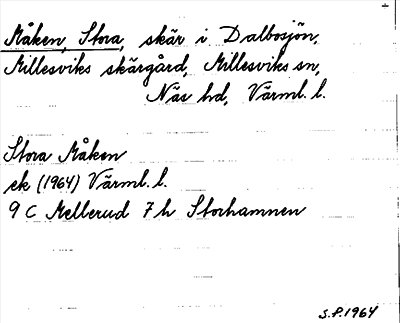 Måken, Stora, skär i Dalbosjön,
Millesviks skärgård, Millesviks sn,
Näs hd, Värml. l.
Stora Måken
ek (1964) Värml. l.
9 C Mellerud 7 h Storhamnen
S.P. 1964